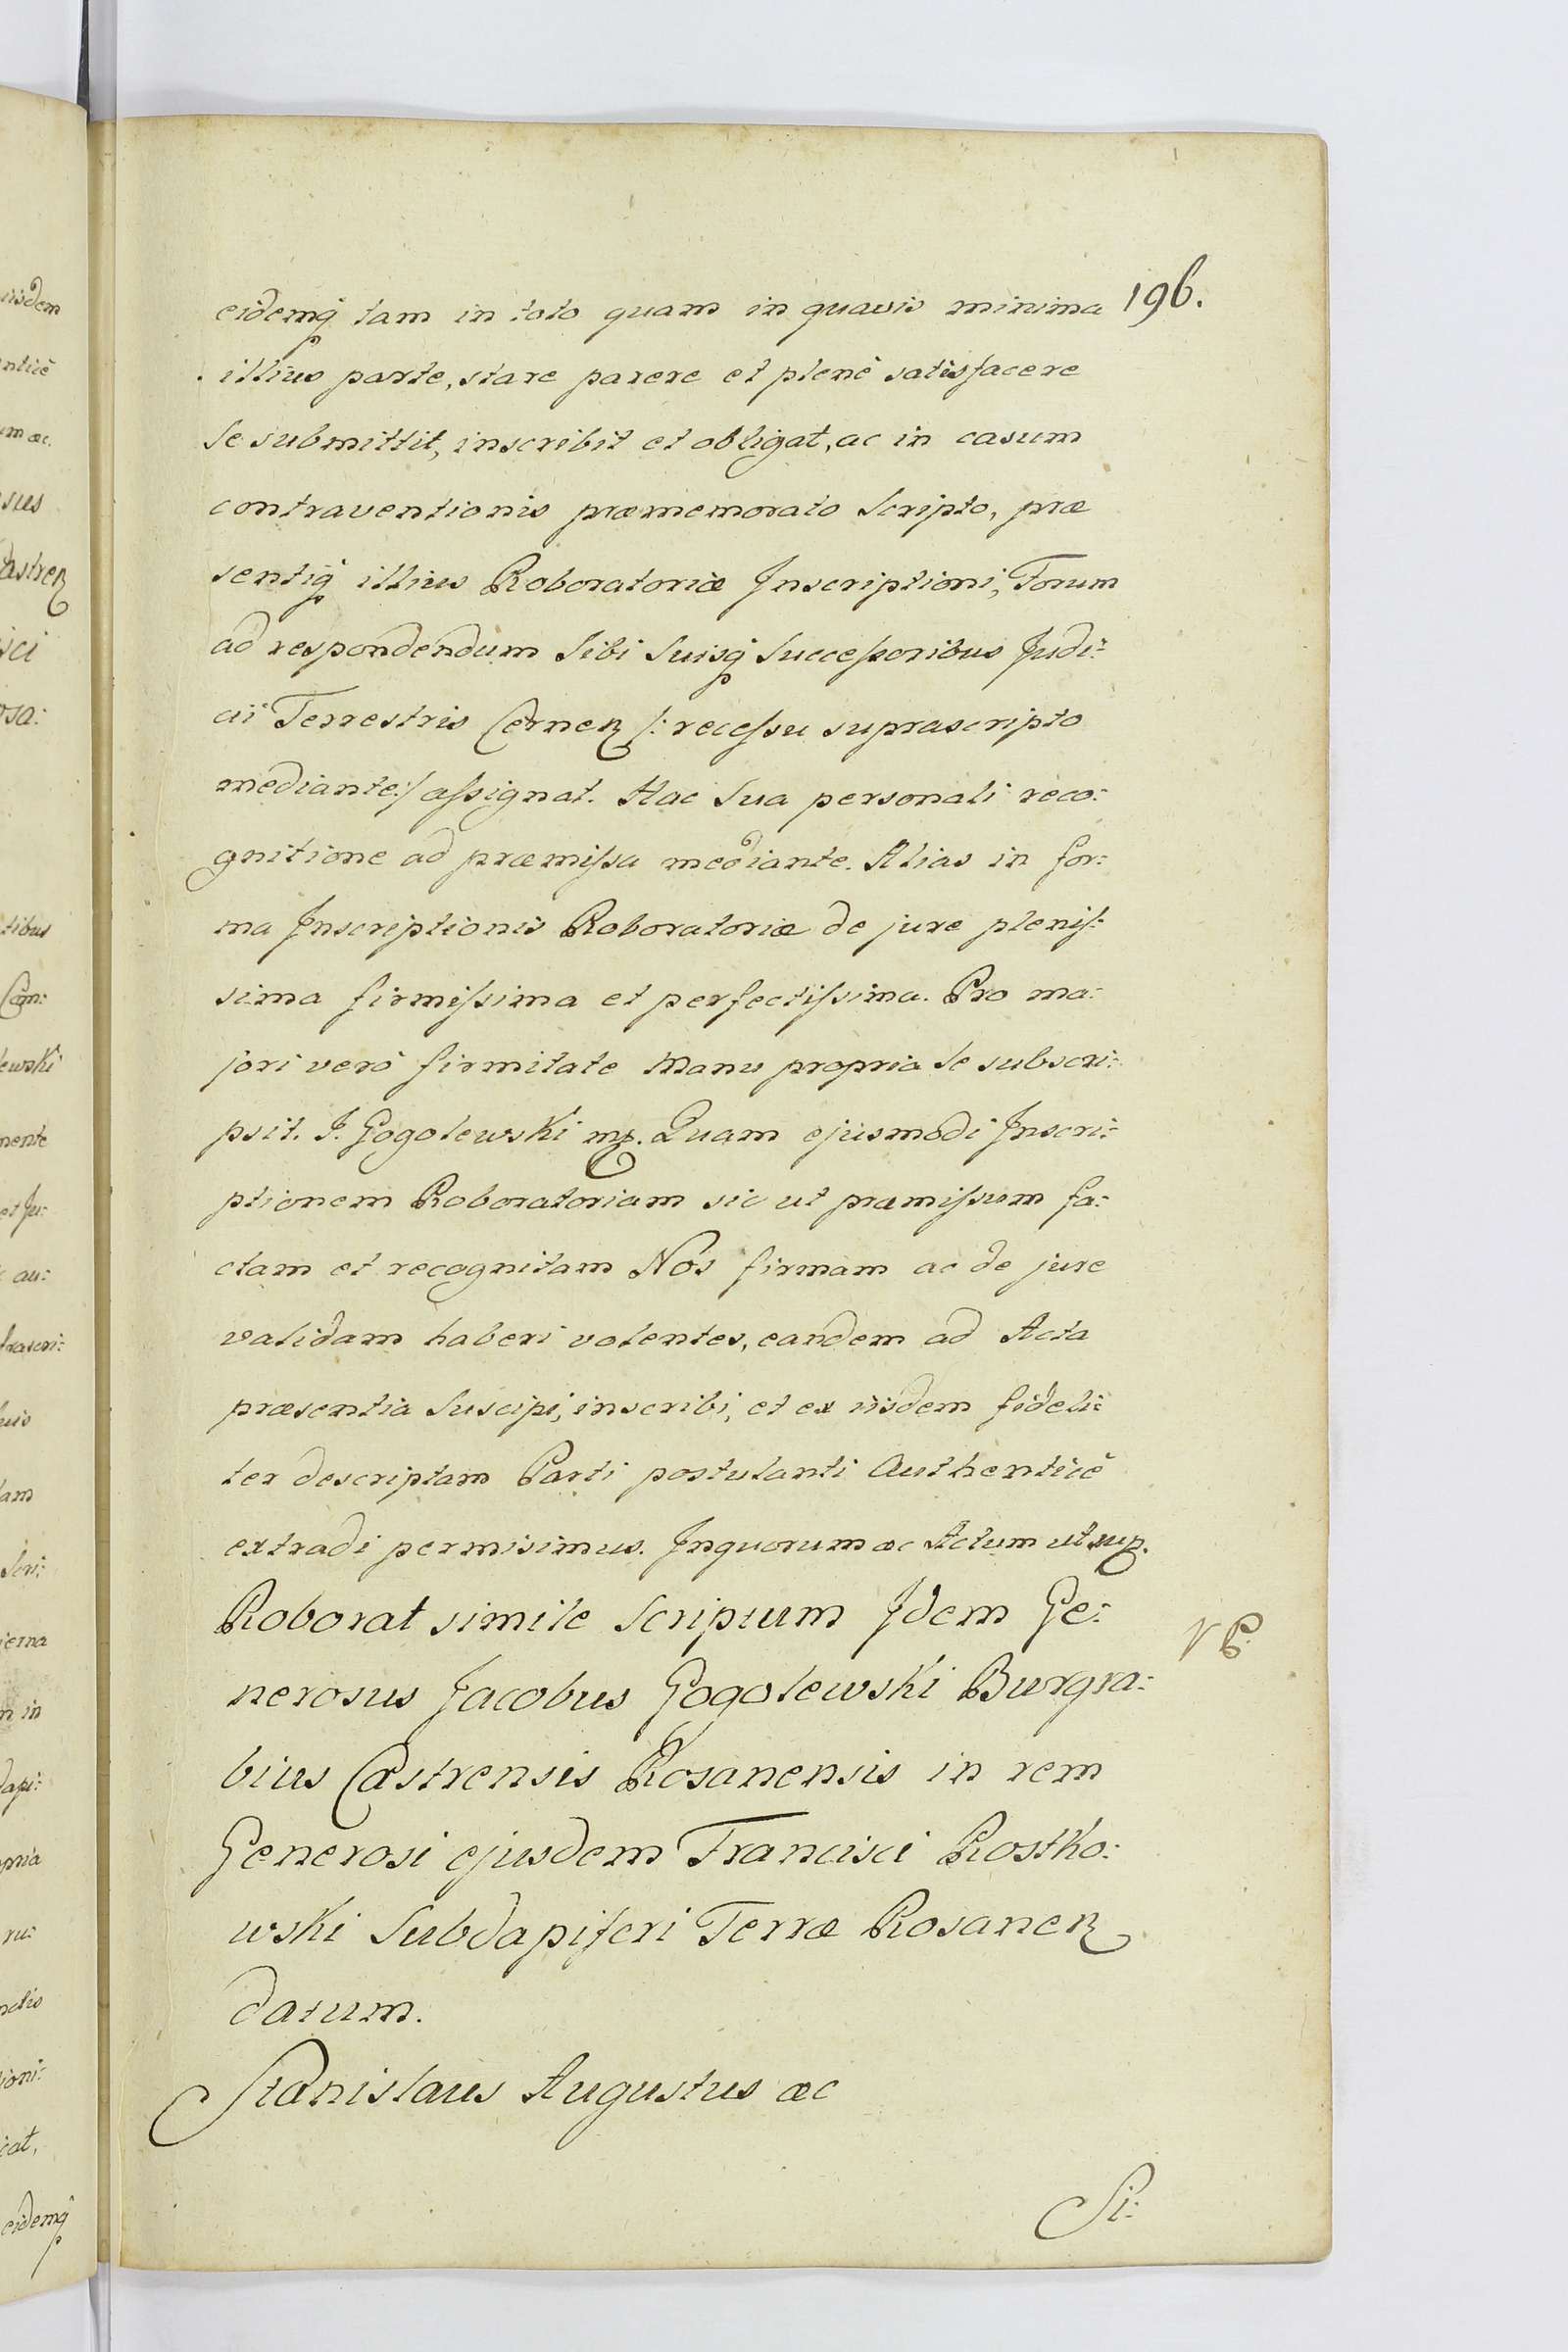 196.
eidemq tam in toto quam in quavis minima
illius parte, stare parere et plenè satisfacere
Se submittit, inscribit et obligat, ac in casum
contraventionis præmemorato Scripto, præ
sentiq illius Roboratoriæ Inscriptioni, Forum
ad respondendum Sibi Suisq Succeſsoribus Judi:
cii Terrestris Cernen /: receſsu suprascripto
mediante:/ aſsignat. Hac Sua personali reco:
gnitione ad præmiſsa mediante. Alias in for:
ma Inscriptionis Roboratoriæ de jure pleniſ:
sima firmiſsima et perfectiſsima. Pro ma:
jori verò firmitate Manu propria Se subscri:
psit. J. Gogolewski mp. Quam ejusmodi Inscri:
ptionem Roboratoriam sic ut præmiſsum fa:
ctam et recognitam Nos firmam ac de jure
validam haberi volentes, eandem ad Acta
præsentia Suscipi, inscribi, et ex iisdem fideli:
ter descriptam Parti postulanti Authenticè
extradi permisimus. Inquorum æc Actum ut sup.
Roborat simile Scriptum Idem Ge:
nerosus Jacobus Gogolewski Burgra:
bius Castrensis Rosanensis in rem
Generosi ejusdem Francisci Rostko:
wski Subdapiferi Terræ Rosanen
datum.
Stanislaus Augustus æc
Si: